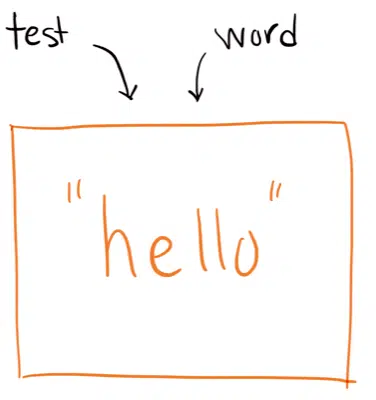 test word
"hello"